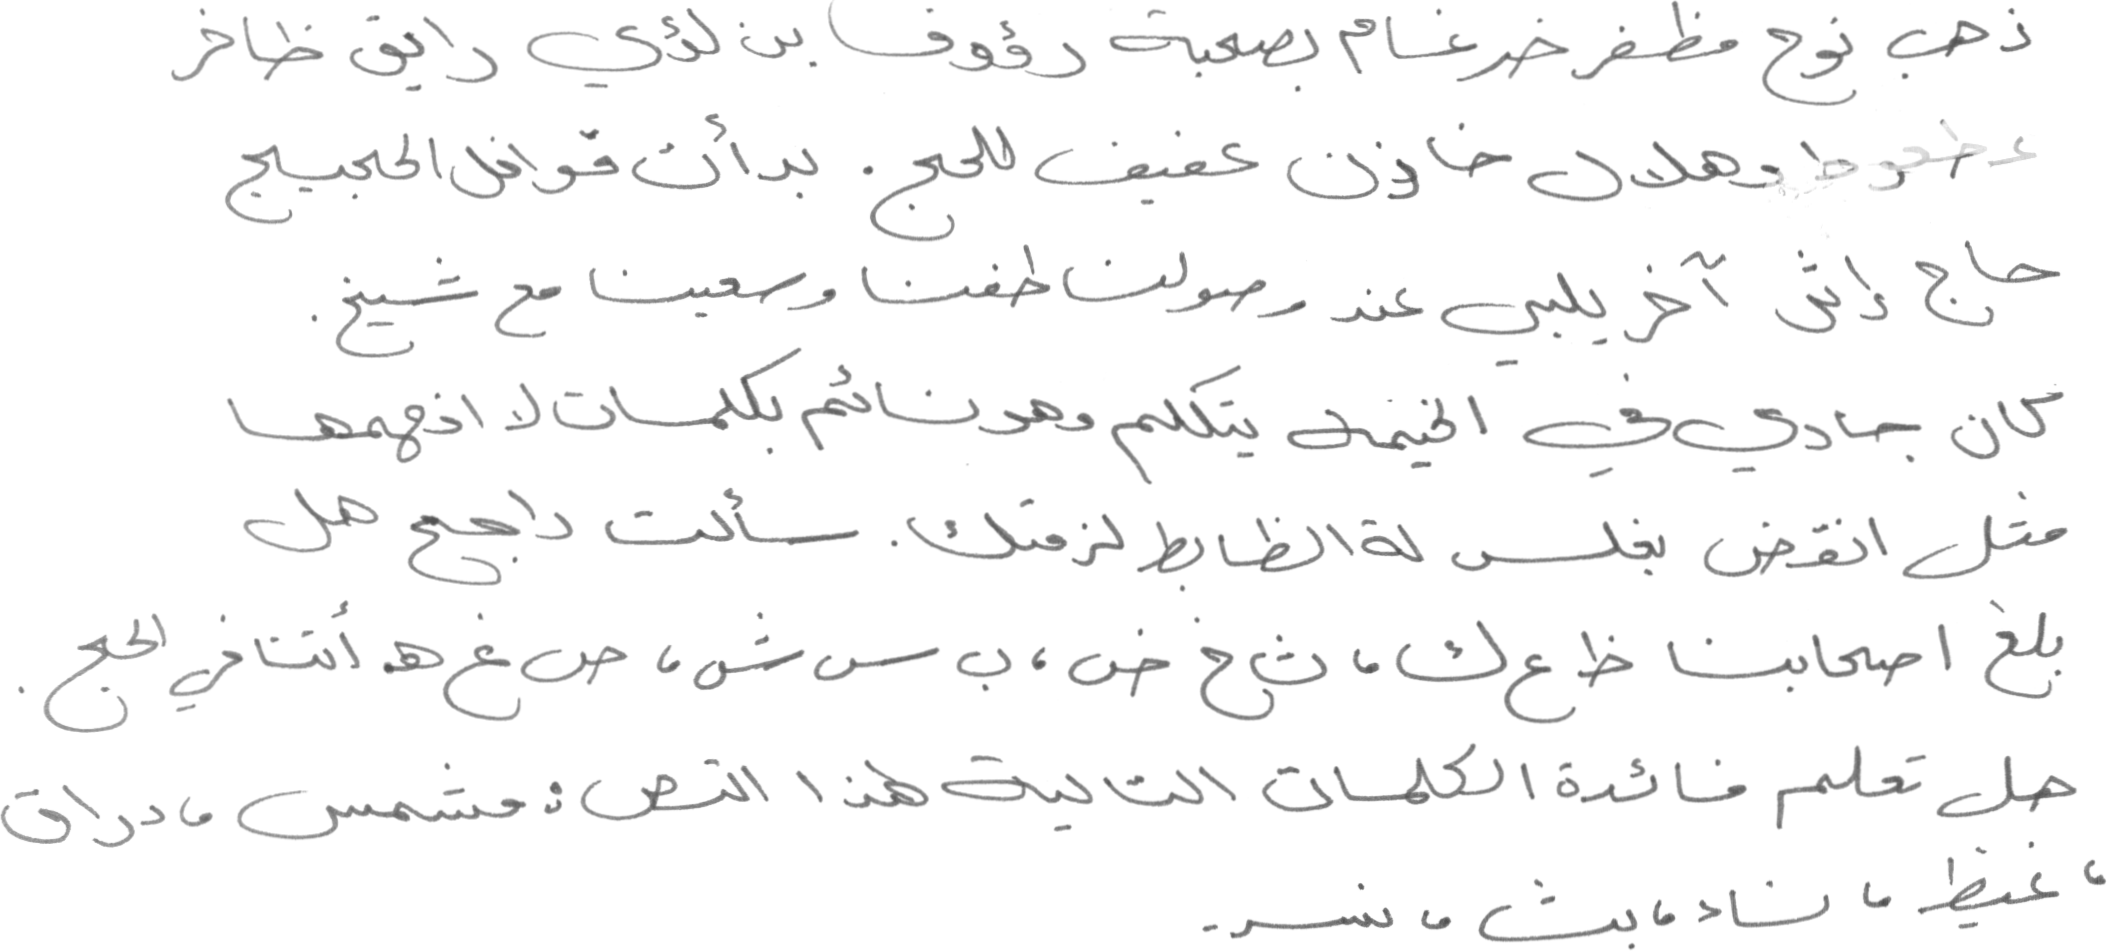 ذهب نوح مظفر ضرغام بصحبة رؤوف بن لؤي رايق ظافر
عطعوط وهلال خازن عفيف للحج . بدأت قوافل الحجيج
حاج إثر آخر يلبي عند وصولنا طفنا وسعينا مع شيخ .
كان جاري في الخيمة يتكلم وهو نائم بكلمات لا افهمها
مثل انقرض بغلس لة الظابط لزمتك . سألت راجح هل
بلغ اصحابنا ظ ع ك ، ث ح ض ، ب س ش ، ص غ ه أننا في الحج .
هل تعلم فائدة الكلمات التالية هذا النص : مشمس ، دراق
، غيظ ، ناد ، بث ، نسر .